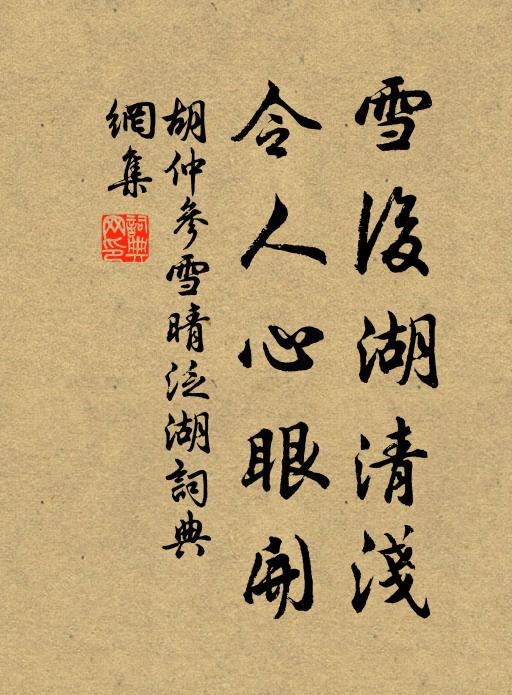 雪後湖清淺
令人心眼開
胡仲參雪晴泛湖詞典
網集
詞典
网印